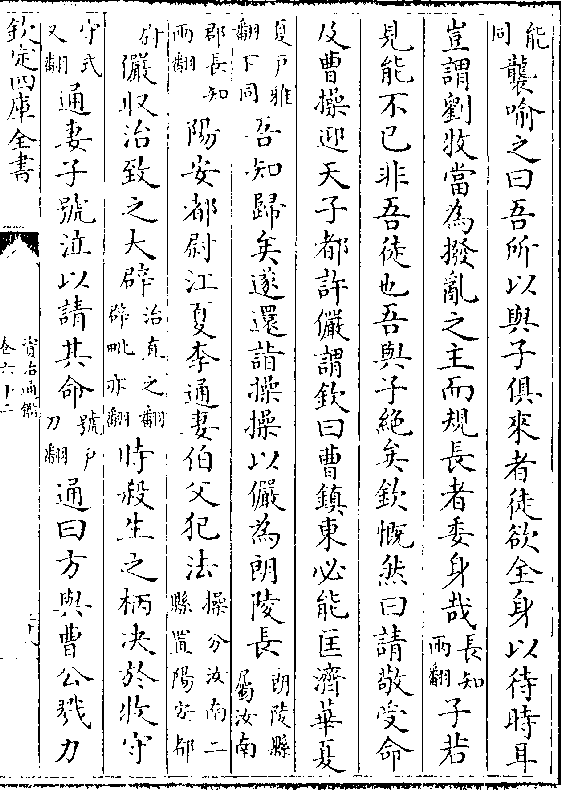 能同襲喻之曰吾所以與子俱來者徒欲全身以待時耳
豈謂劉牧當為撥亂之主而規長者委身哉長知兩翻子若
見能不已非吾徒也吾與子絶矣欽慨然曰請敬受命
及曹操迎天子都許儼謂欽曰曹鎮東必能匡濟華夏
夏戶雅翻下同吾知歸矣遂還詣操操以儼為朗陵長朗陵縣屬汝南
郡長知兩翻陽安都尉江夏李通妻伯父犯法操分汝南二縣置陽安都
尉儼收治致之大辟治直之翻辟毗亦翻時殺生之柄决於牧守
守式又翻通妻子號泣以請其命號戶刀翻通曰方與曹公戮力
欽定四庫全書
資治通鑑
卷六十二